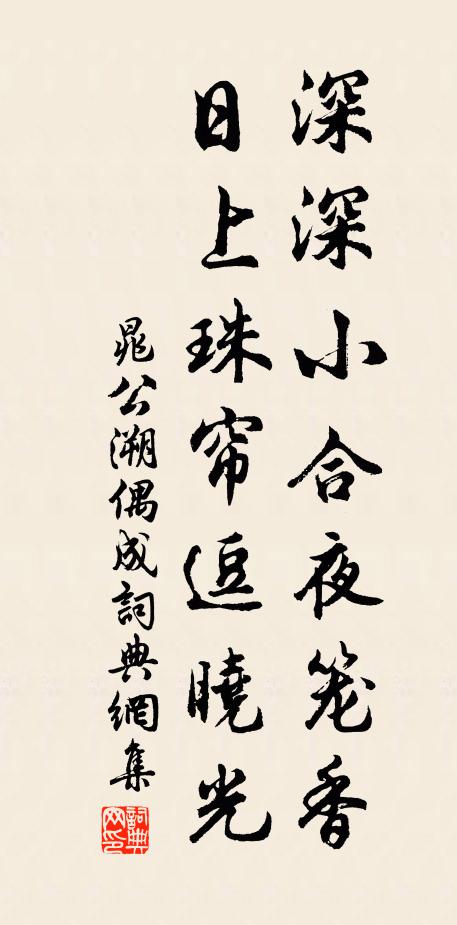 深深小合夜笼香
日上珠帘逗曉光
晁公溯偶成詞典網集
詞典網印